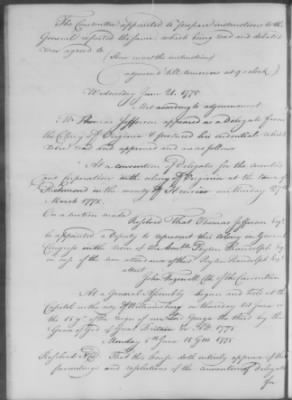 The Committee appointed to prepare instructions to the
General reported the same which being read and debated
were agreed to
(Here insert the instructions)
adjourned till tomorrow at 9 o'clock
Wednesday June 21. 1775
Met according to adjournment
Mr Thomas Jefferson appeared as a delegate from
the Colony of Virginia & produced his credentials which
were read and approved and are as follows
At a convention of Delegates for the counties
and Corporations in the colony of Virginia at the town of
Richmond in the county of Henrico on Monday 27th
March 1775.
On a motion made
Resolved That Thomas Jefferson Esqr
be appointed a deputy to represent this colony in General
Congress in the room of the honble Peyton Randolph Esqr
in case of the non attendance of the sd Peyton Randolph Esqr
John Tazewell Clk of the Convention
At a General Assembly begun and held at the
Capitol in the city of Williamsburg on Thursday 1st June in
the 15 yr of the reign of our Lord George the third by the
Grace of God of Great Britain &c A.D. 1775
Monday 5th June 15 G III 1775
Resolved That this house doth entirely approve of the
proceedings and resolutions of the convention of delegates
for